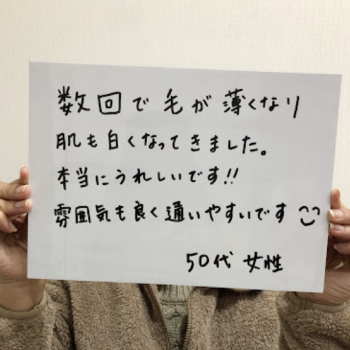 数回で毛が薄くなり
肌も白くなってきました。
本当にうれしいです!!
雰囲気も良く通いやすいです
50代 女性